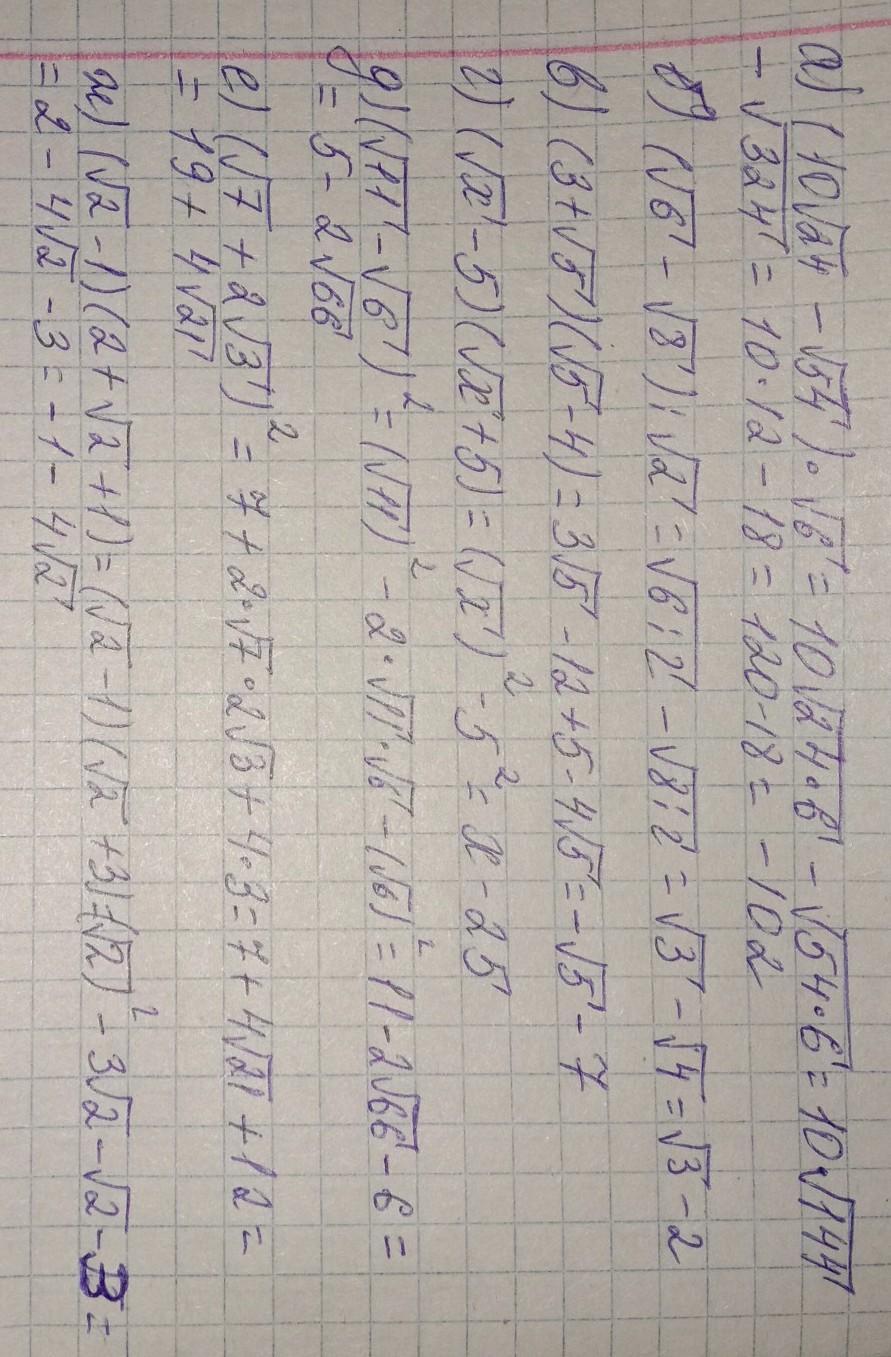 а) (10√24 - √54) · √6 = 10√24·6 - √54·6 = 10√144
- √324 = 10·12 - 18 = 120-18 = -102
б) (√6 - √8) : √2 = √6:2 - √8:2 = √3 - √4 = √3 - 2
в) (3+√5)(√5-4) = 3√5 - 12 + 5 - 4√5 = -√5 - 7
г) (√x - 5)(√x + 5) = (√x)² - 5² = x - 25
д) (√11 - √6)² = (√11)² - 2·√11·√6 - (√6)² = 11 - 2√66 - 6 =
= 5 - 2√66
е) (√7 + 2√3)² = 7 + 2·√7·2√3 + 4·3 = 7 + 4√21 + 12 =
= 19 + 4√21
ж) (√2 - 1)(2 + √2 + 1) = (√2 - 1)(√2 + 3) = (√2)² - 3√2 - √2 - 3 =
= 2 - 4√2 - 3 = -1 - 4√2